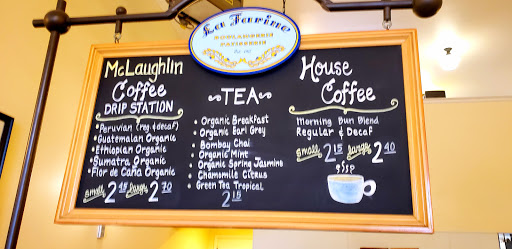 La Farine
BOULANGERIE
PATISSERIE
McLaughlin
Coffee
DRIP STATION
• Peruvian (reg & decaf)
• Guatemalan Organic
• Ethiopian Organic
• Sumatra Organic
• Flor de Caña Organic
Small 2 45 Large 2 70
~TEA~
• Organic Breakfast
• Organic Earl Grey
• Bombay Chai
• Organic Mint
• Organic Spring Jasmine
• Chamomile Citrus
• Green Tea Tropical
2 15
House
Coffee
Morning Bun Blend
Regular & Decaf
Small 2 15 Large 2 40